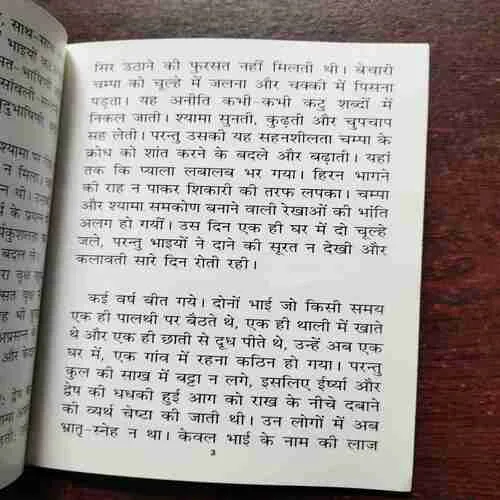 साथ-साथ
भाइयों
सिर उठाने की फुरसत नहीं मिलती थी। बेचारी
चम्पा को चूल्हे में जलना और चक्की में पिसना
पड़ता। यह अनीति कभी-कभी कटु शब्दों में
निकल जाती। श्यामा सुनती, कुढ़ती और चुपचाप
सह लेती। परन्तु उसकी यह सहनशीलता चम्पा के
क्रोध को शांत करने के बदले और बढ़ाती। यहां
तक कि प्याला लबालब भर गया। हिरन भागने
की राह न पाकर शिकारी की तरफ लपका। चम्पा
और श्यामा समकोण बनाने वाली रेखाओं की भांति
अलग हो गयीं। उस दिन एक ही घर में दो चूल्हे
जले, परन्तु भाइयों ने दाने की सूरत न देखी और
कलावती सारे दिन रोती रही।
कई वर्ष बीत गये। दोनों भाई जो किसी समय
एक ही पालथी पर बैठते थे, एक ही थाली में खाते
थे और एक ही छाती से दूध पीते थे, उन्हें अब एक
घर में, एक गांव में रहना कठिन हो गया। परन्तु
कुल की साख में बट्टा न लगे, इसलिए ईर्ष्या और
द्वेष की धधकी हुई आग को राख के नीचे दबाने
की व्यर्थ चेष्टा की जाती थी। उन लोगों में अब
भ्रातृ-स्नेह न था। केवल भाई के नाम की लाज
3